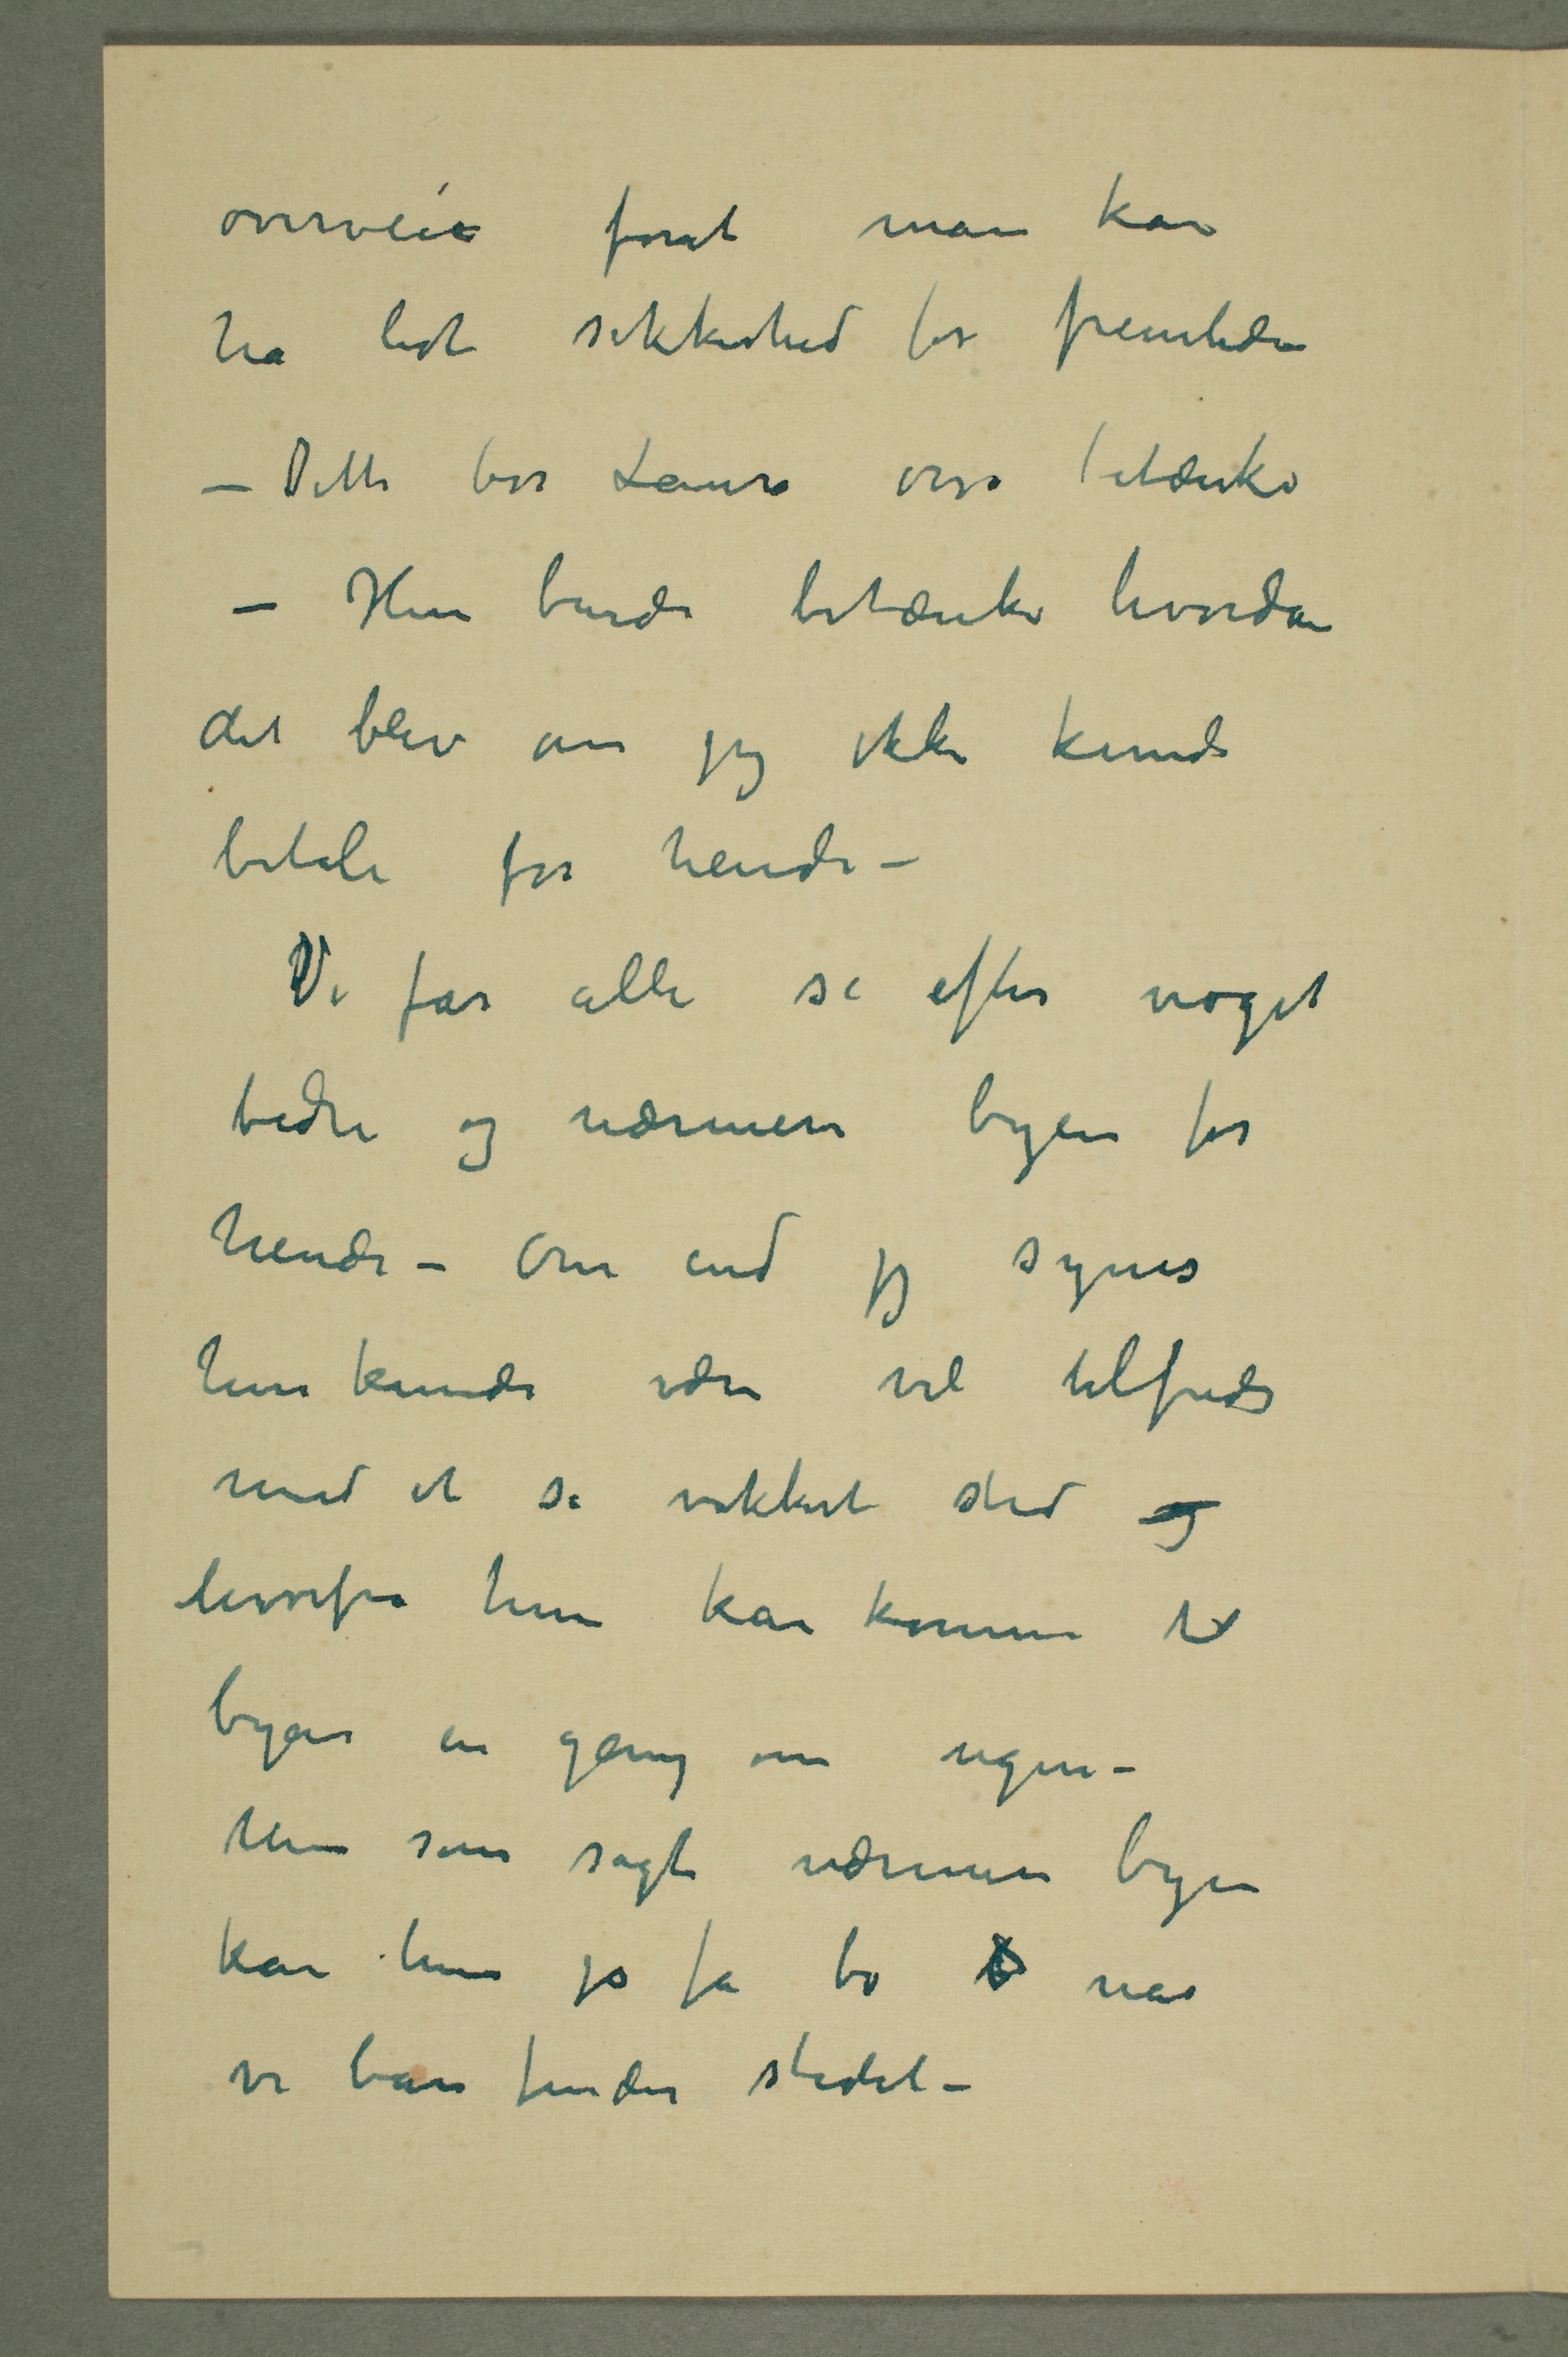 overveie forat man kan
ha lidt sikkerhed for fremtiden
– Dette bør Laura også betænke
– Hun burde betænke hvordan
det blev om jeg ikke kunde
betale for hende –
Vi får alle se efter noget
bedre og nærmere byen for
hende – Om end jeg synes
hun kunde være vel tilfreds
med et så vakkert sted og
hvorfra hun kan komme til
byen en gang om ugen –
Men som sagt nærmere byen
kan hun jo få bo når
vi bare finder stedet –